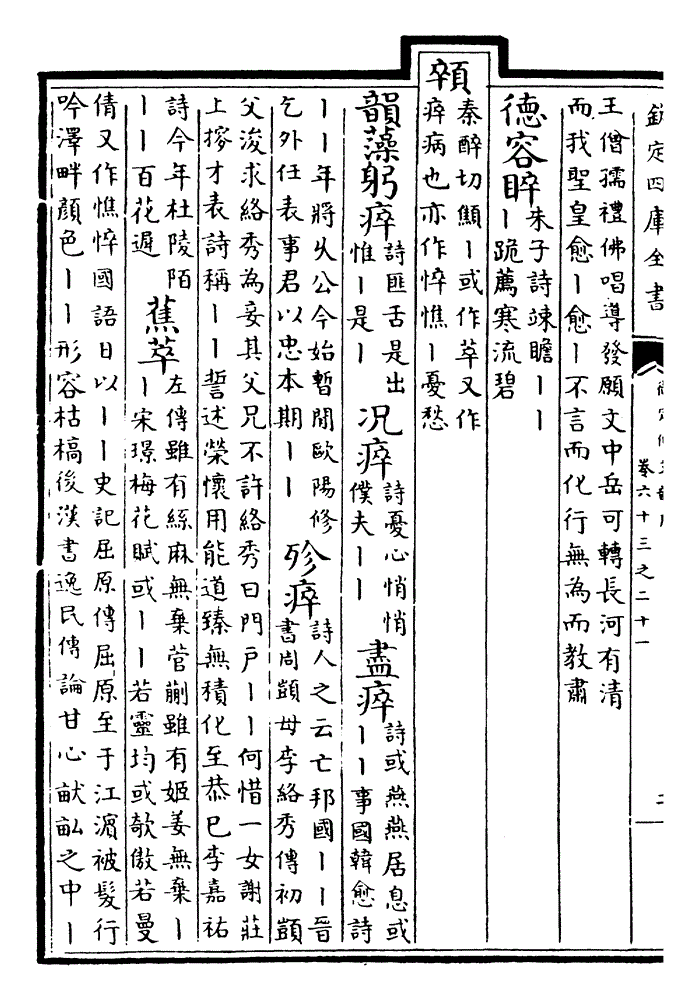 欽定四庫全書
卷六十三之二十一
王僧孺禮佛唱導發願文中岳可轉長河有清
而我聖皇愈丨愈丨不言而化行無為而教肅
德容睟
朱子詩竦瞻丨丨
丨跪薦寒流碧
顇
秦醉切顦丨或作萃又作
瘁病也亦作悴憔丨憂愁
韻藻躬瘁
詩匪舌是出
惟丨是丨
况瘁
詩憂心悄悄
僕夫丨丨
盡瘁
詩或燕燕居息或
丨丨事國韓愈詩
丨丨年將乆公今始暫閒歐陽修
乞外任表事君以忠本期丨丨
殄瘁
詩人之云亡邦國丨丨晉
書周顗母李絡秀傳初顗
父浚求絡秀為妾其父兄不許絡秀曰門戶丨丨何惜一女謝莊
上搈才表詩稱丨丨誓述榮懷用能道臻無積化至恭巳李嘉祐
詩今年杜陵陌
丨丨百花遲
蕉萃
左傳雖有絲麻無棄菅蒯雖有姬姜無棄丨
丨宋璟梅花賦或丨丨若靈均或欹傲若曼
倩又作憔悴國語日以丨丨史記屈原傳屈原至于江濵被髮行
吟澤畔顏色丨丨形容枯槁後漢書逸民傳論甘心畎畝之中丨